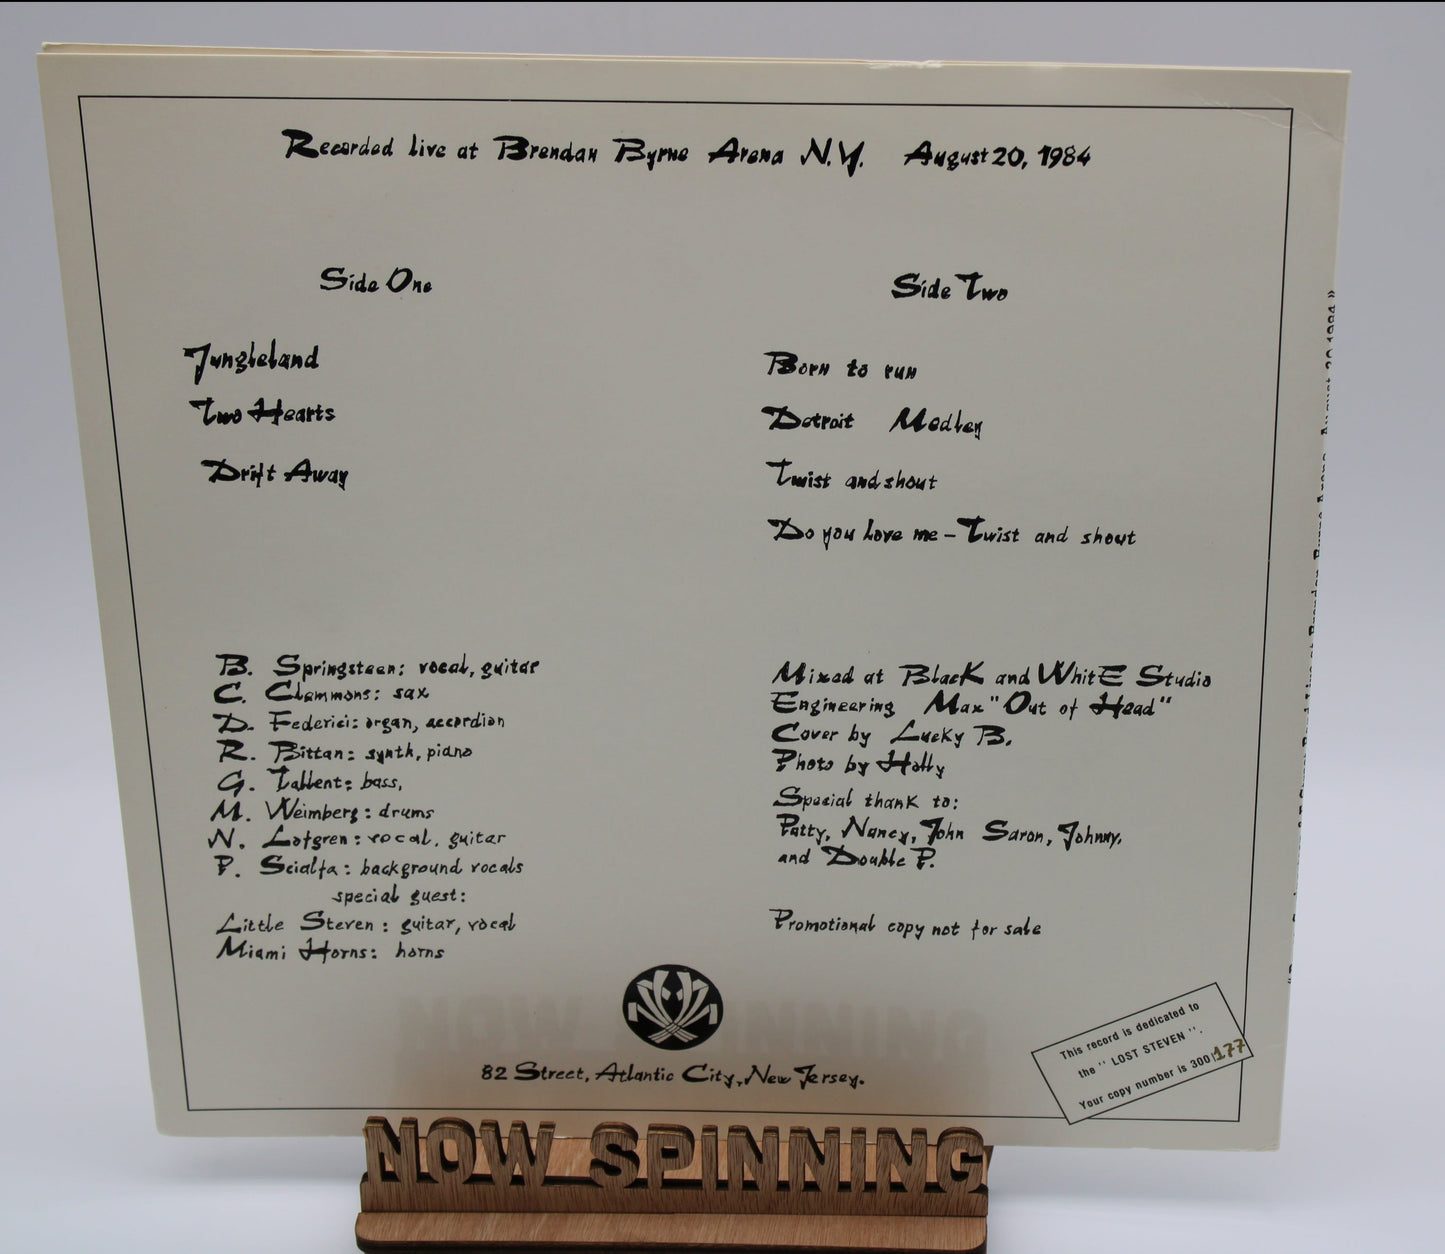 Recorded live at Brendan Byrne Arena N.Y. August 20, 1984
Side One
Jungleland
Two Hearts
Drift Away
Side Two
Born to run
Detroit Medley
Twist and shout
Do you love me - Twist and shout
B. Springsteen: vocal, guitar
C. Clemmons: sax
D. Federici: organ, accordion
R. Bittan: synth, piano
G. Tallent: bass,
M. Weimberg: drums
N. Lofgren: vocal, guitar
P. Scialfa: background vocals
special guest:
Little Steven: guitar, vocal
Miami Horns: horns
Mixed at Black and WhitE Studio
Engineering Max "Out of Head"
Cover by Lucky B.
Photo by Holly
Special thank to:
Patty, Nancy, John Saron, Johnny,
and Double P.
Promotional copy not for sale
82 Street, Atlantic City, New Jersey.
This record is dedicated to
the " LOST STEVEN ".
Your copy number is 300/177
Brendan Byrne Arena August 20 1984"
NOW SPINNING